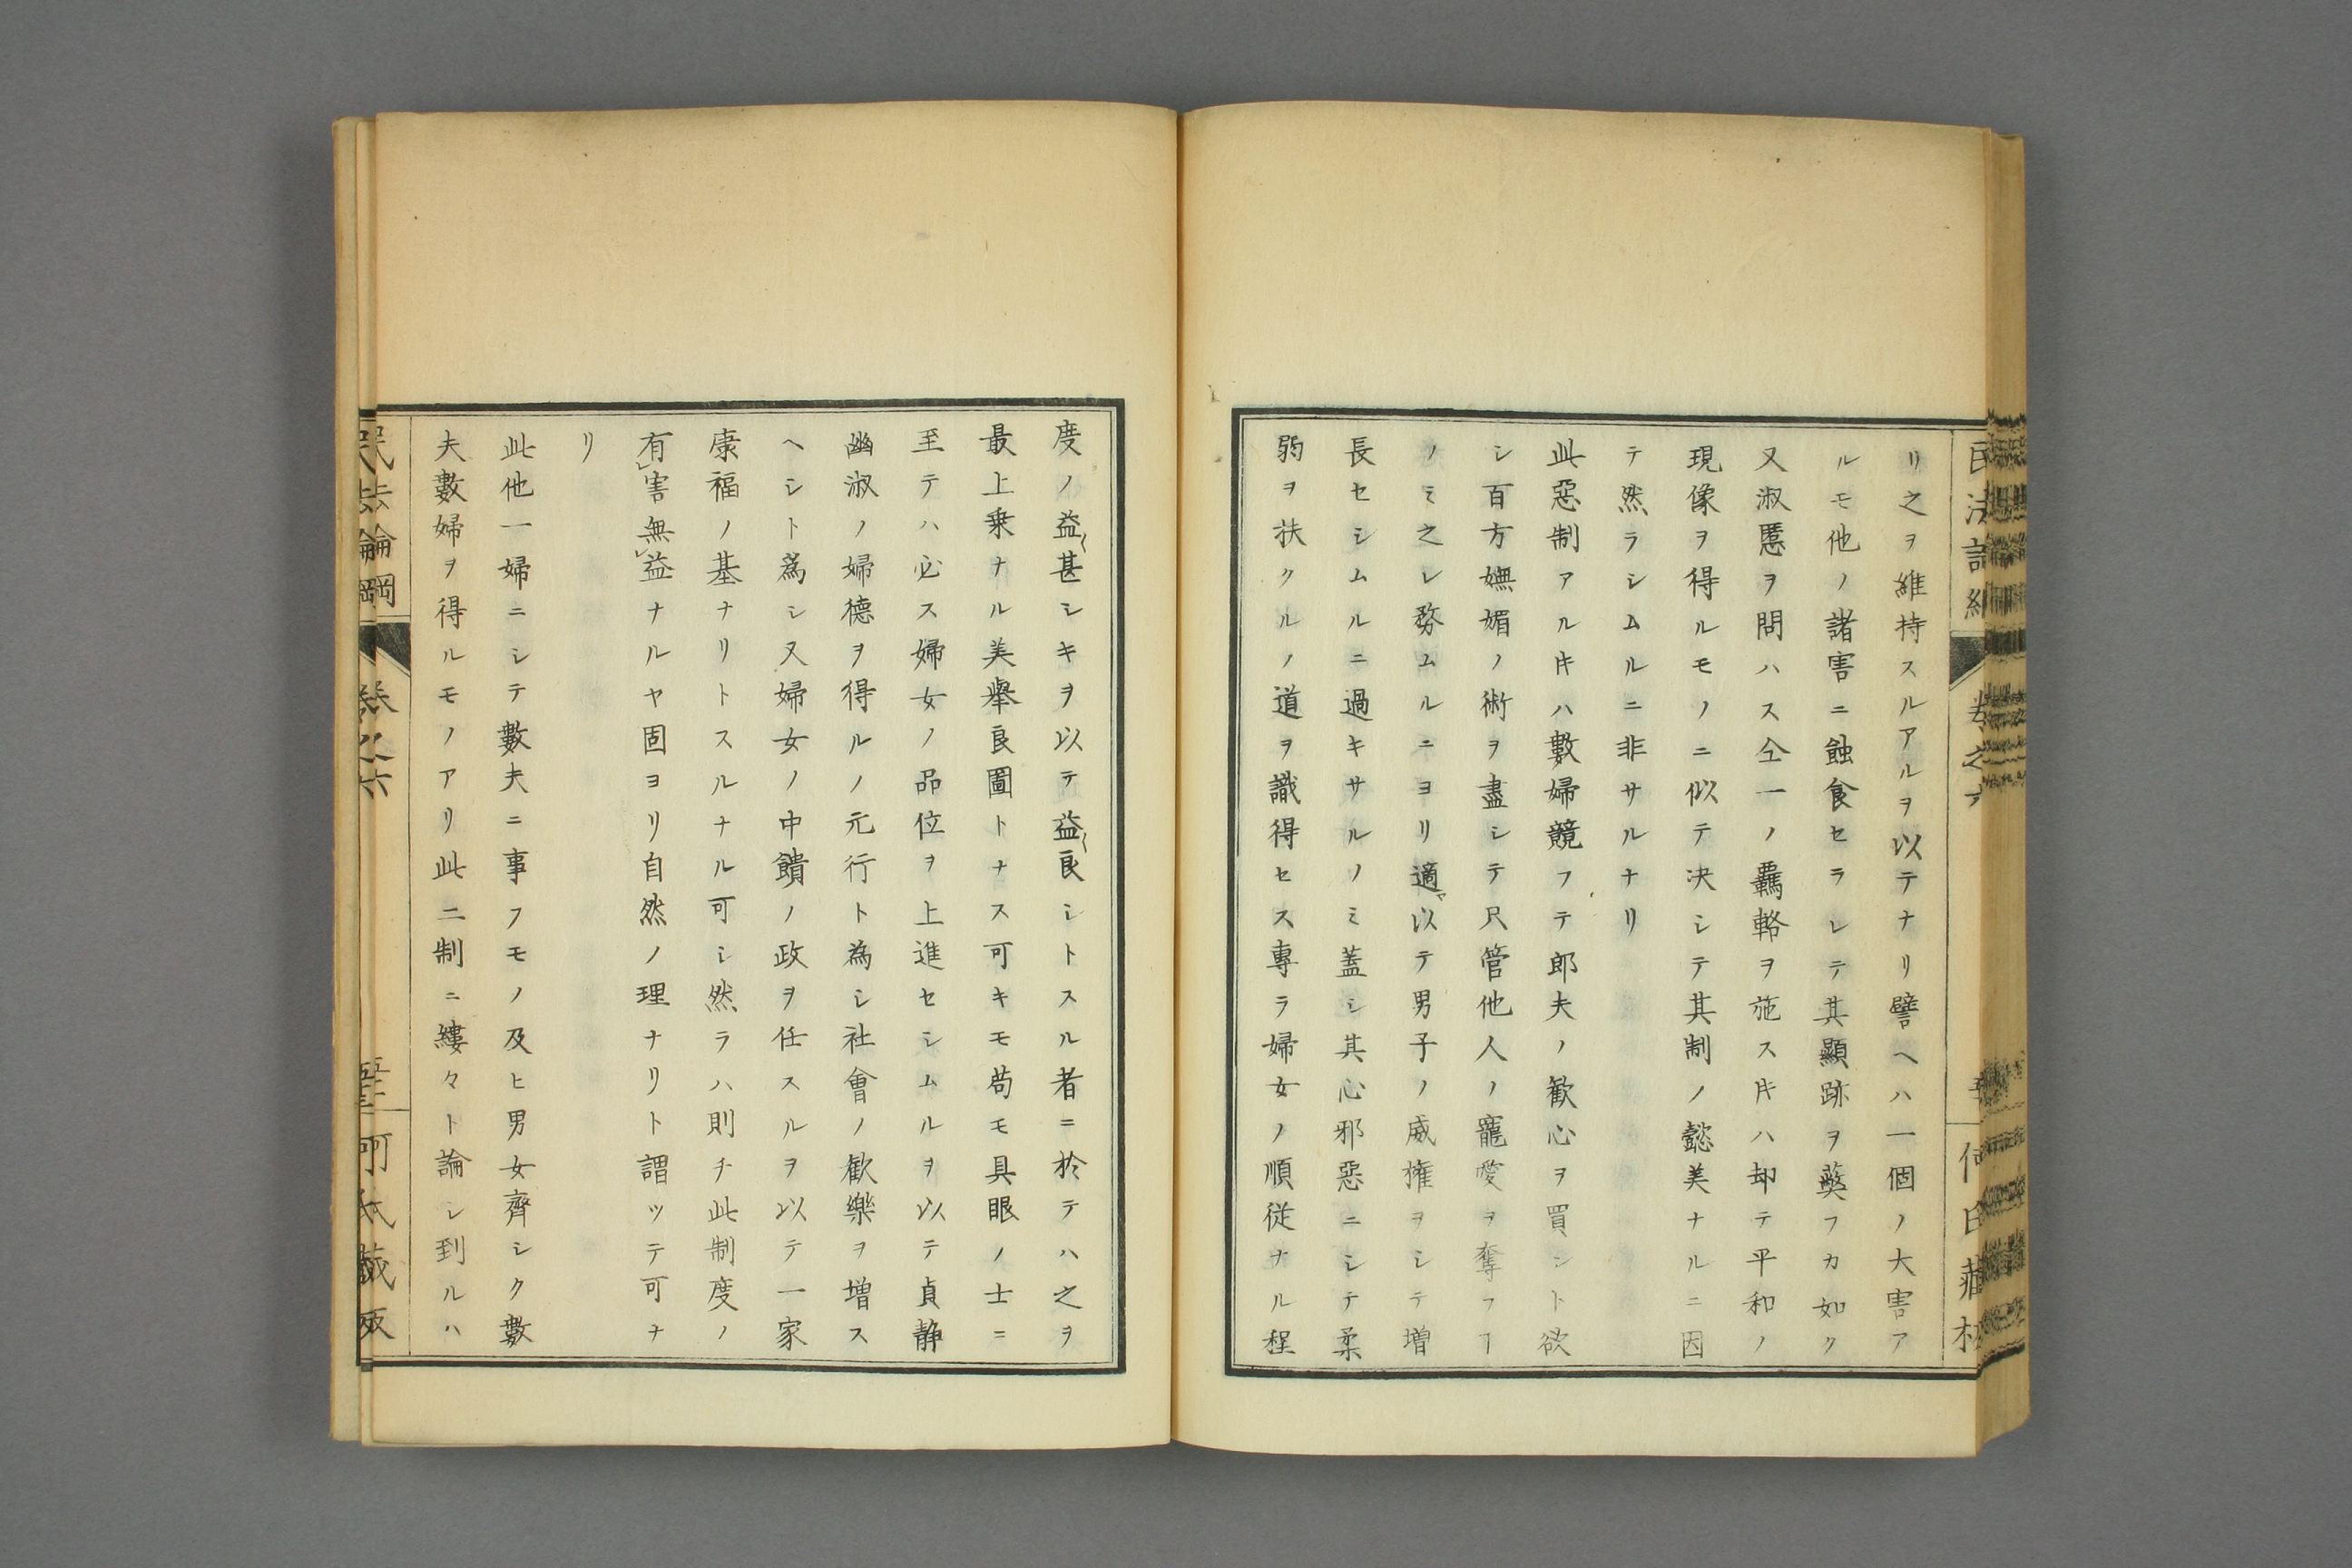 リ之ヲ維持スルアルヲ以テナリ譬ヘハ一個ノ大害ア
ルモ他ノ諸害ニ蝕食セラレテ其顯跡ヲ蔽フカ如ク
又淑慝ヲ問ハス仝一ノ羈輅ヲ施ス𪜈ハ却テ平和ノ
現像ヲ得ルモノニ似テ决シテ其制ノ懿美ナルニ因
テ然ラシムルニ非サルナリ
此惡制アル𪜈ハ數婦競フテ郎夫ノ歓心ヲ買ント欲
シ百方嫵媚ノ術ヲ盡シテ尺管他人ノ寵愛ヲ奪フヿ
ノミ之レ務ムルニヨリ適以テ男子ノ威権ヲシテ増
長セシムルニ過キサルノミ蓋シ其心邪惡ニシテ柔
弱ヲ扶クルノ道ヲ識得セス專ラ婦女ノ順従ナル程
度ノ益〻甚シキヲ以テ益〻良シトスル者ニ於テハ之ヲ
最上乗ナル美擧良圖トナス可キモ苟モ具眼ノ士ニ
至テハ必ス婦女ノ品位ヲ上進セシムルヲ以テ貞静
幽淑ノ婦德ヲ得ルノ元行ト為シ社會ノ歓樂ヲ増ス
ヘシト為シ又婦女ノ中饋ノ政ヲ任スルヲ以テ一家
康福ノ基ナリトスルナル可シ然ラハ則チ此制度ノ
有レ害無レ益ナルヤ固ヨリ自然ノ理ナリト謂ッテ可ナ
リ
此他一婦ニシテ數夫ニ事フモノ及ヒ男女齊シク數
夫數婦ヲ得ルモノアリ此二制ニ縷々ト論シ到ルハ
民法論綱 卷之六 何氏藏板